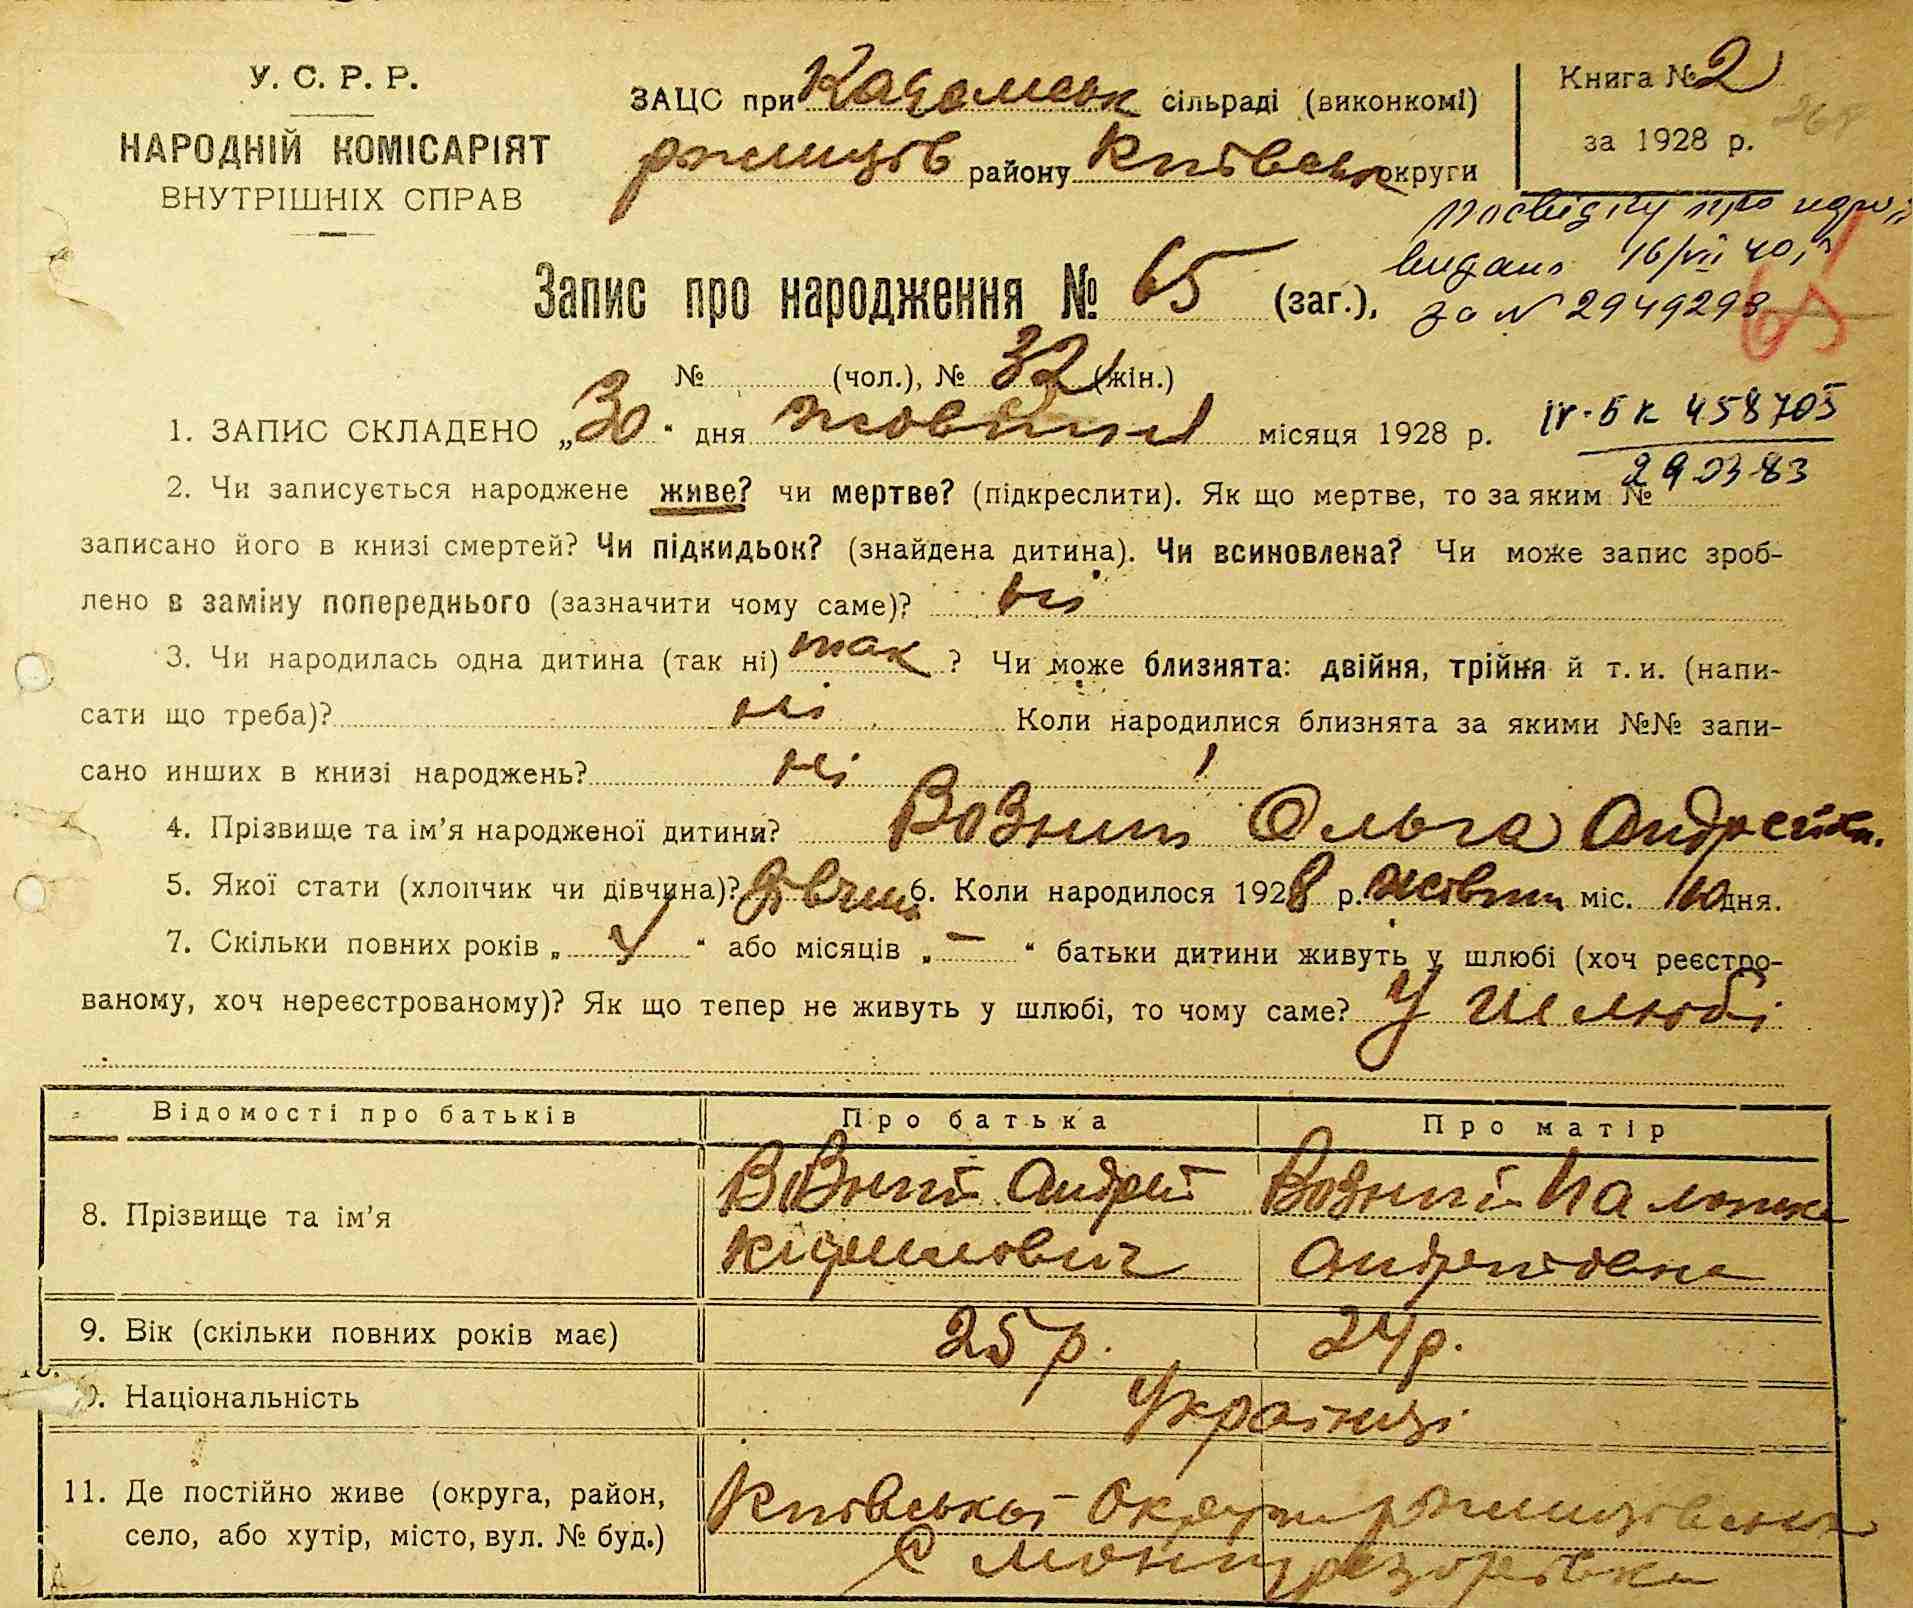 У. С. Р. Р.
НАРОДНІЙ КОМІСАРІЯТ
ВНУТРІШНІХ СПРАВ
ЗАЦС при сільраді (виконкомі)
району Київськ округи
Книга № 2
за 1928 р.
268
Посвідку про
видано 16/VII 40 р
за N 2949293
65
Запис про народження № 65 (заг.),
№ (чол.), № 32 (жін.)
1. ЗАПИС СКЛАДЕНО „30“ дня жовтня місяця 1928 р.
IV-БК 458705
29 03 83
2. Чи записується народжене живе? чи мертве? (підкреслити). Як що мертве, то за яким №
записано його в книзі смертей? Чи підкидьок? (знайдена дитина). Чи всиновлена? Чи може запис зроб-
лено в заміну попереднього (зазначити чому саме)? ні
3. Чи народилась одна дитина (так ні) так ? Чи може близнята: двійня, трійня й т. и. (напи-
сати що треба)? ні Коли народилися близнята за якими №№ запи-
сано инших в книзі народжень? ні
4. Прізвище та ім'я народженої дитини? Возний Ольга
5. Якої стати (хлопчик чи дівчина)? дівчин 6. Коли народилося 1928 р. жовтн міс. 10 дня.
7. Скільки повних років „ У “ або місяців „ — “ батьки дитини живуть у шлюбі (хоч реєстро-
ваному, хоч нереєстрованому)? Як що тепер не живуть у шлюбі, то чому саме? У шлюбі
Відомості про батьків Про батька Про матір
8. Прізвище та ім'я Возний Андрей Возний
Кірилович Андреівна
9. Вік (скільки повних років має) 25 р. 24 р.
10. Національність Українці
11. Де постійно живе (округа, район, Київської Округи
село, або хутір, місто, вул. № буд.) с